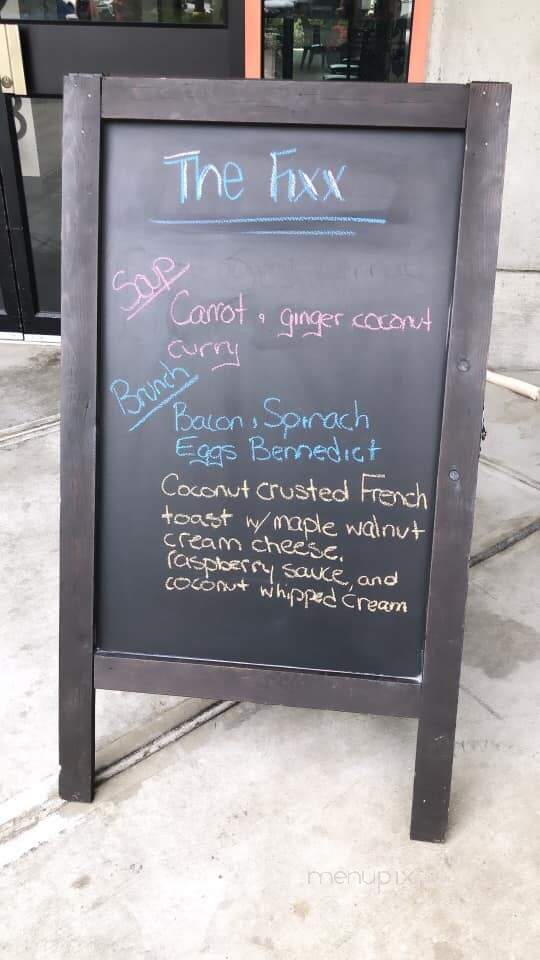 The Fixx
Soup
Carrot & ginger coconut
curry
Brunch
Bacon & Spinach
Eggs Bennedict
Coconut crusted French
toast w/ maple walnut
cream cheese,
raspberry sauce, and
coconut whipped cream
menupix